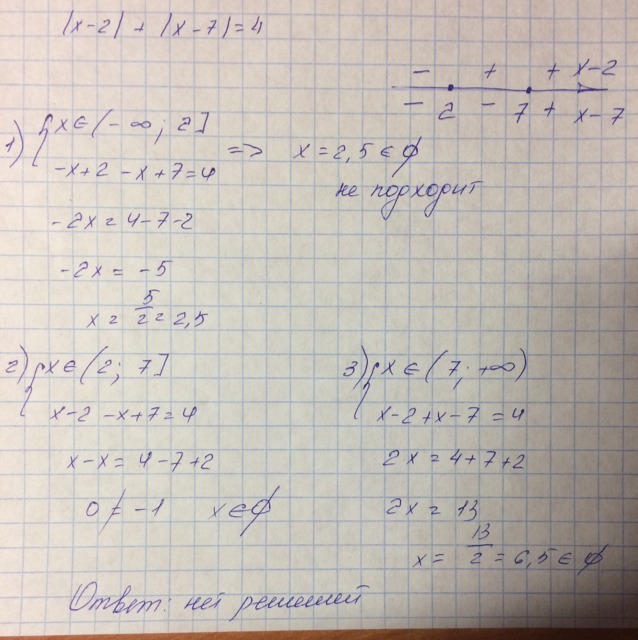 |x-2| + |x-7| = 4
- + + x-2
- 2 - 7 + x-7
1) { x ∈ (-∞; 2]
-x+2 -x+7=4 => x = 2,5 ∈ ∅
не подходит
-2x = 4-7-2
-2x = -5
x = 5/2 = 2,5
2) { x ∈ (2; 7]
x-2 -x+7=4
x-x = 4-7+2
0 ≠ -1 x ∈ ∅
3) { x ∈ (7; +∞)
x-2+x-7 = 4
2x = 4+7+2
2x = 13
x = 13/2 = 6,5 ∈ ∅
Ответ: нет решений